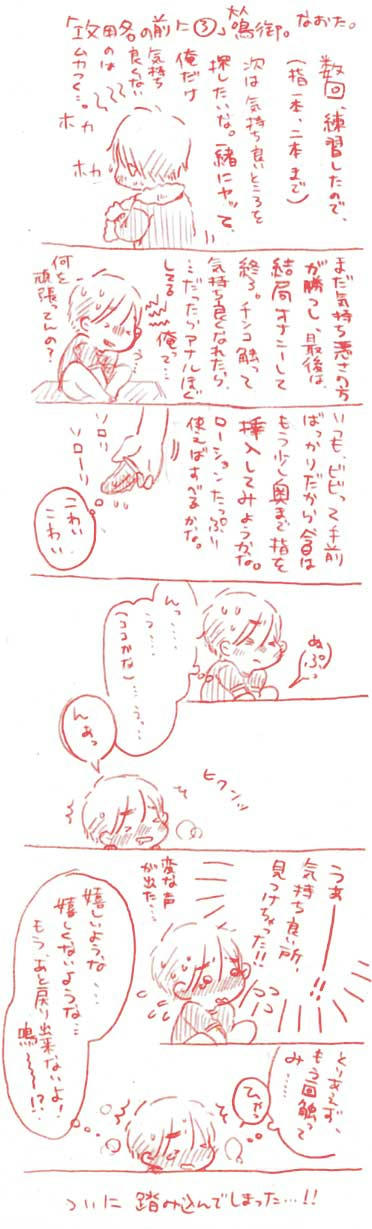 の前に③」
鳴御。なおた。
数回、練習したので、
(指一本、二本まで)
次は気持ち良いところを
探したいな。一緒にヤッて、
俺だけ
気持ち
良くない
のは
ムカつく…。
ホカ
ホカ
まだ気持ち悪さの方
が勝つし、最後は、
結局オナニーして
終る。チンコ触って
気持ち良くなれたら、
…だったらアナルほぐ
してる俺って…
何を
頑張ってんの?
いつも、ビビって手前
ばっかりだから今日は
もう少し奥まで指を
挿入してみようかな。
ローションたっぷり
使えばすべるかな。
ソロリ
ソローリ
こわい
こわい
ぬぷっ
んっ……
う……
(ココかな)……うっ……
ヒクンッ
んあっ
うあーーー!!
気持ち良い所、
見つけちゃった!!
変な声
が出た……
嬉しいような……
嬉しくないような…
もう、あと戻り出来ないよ!
鳴〜〜〜!?
とりあえず、
もう一回触って
み……
ひゃっ
ついに踏み込んでしまった…!!